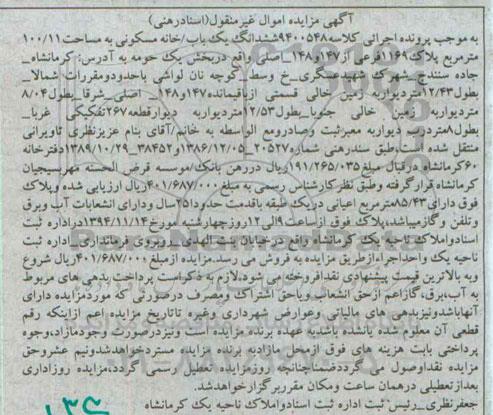 آگهی مزایده اموال غیرمنقول(اسنادرهنی)
به موجب پرونده اجرائی کلاسه۹۴۰۰۵۴۸ششدانگ یک باب/خانه مسکونی به مساحت۱۰۰/۱۱
مترمربع پلاک۱۱۶۹فرعی از۱۴۷و۱۴۸_اصلی واقع دربخش یک حومه به آدرس: کرمانشاه_
جاده سنندج_شهرک شهیدعسگری_خ وسط_کوچه نان لواشی باحدودومقررات شمالا_
بطول۱۲/۴۳متردیواربه زمین خالی قسمتی ازباقیمانده۱۴۷و۱۴۸_ اصلی_شرقا_بطول۸/۰۴
متردیواربه زمین خالی جنوبا_بطول۱۲/۵۳متردیواربه دیوارقطعه۲۶۷تفکیکی غربا_
بطول۸متردرب دیواربه معبرثبت وصادرومع الواسطه به خانم/آقای بنام عزیزنظری تاویرانی
منتقل شده است.طبق سندرهنی شماره۲۰۵۲۷_۱۳۸۶/۱۲/۰۵و۳۸۴۵۲_۱۳۸۹/۱۰/۲۹دفترخانه
۶۰کرمانشاه درقبال مبلغ۱۹۱/۲۶۵/۰۳۵ریال دررهن بانک/موسسه قرض الحسنه مهربسیجیان
کرمانشاه قرارگرفته وطبق نظرکارشناس رسمی به مبلغ۴۰۱/۶۸۷/۰۰۰ریال ارزیابی شده وپلاک
فوق دارای۸۵/۴۳مترمربع اعیانی دریک طبقه باقدمت حدودا۲۵سال ودارای انشعابات آب وبرق
وتلفن وگازمیباشد،پلاک فوق ازساعت۹الی۱۲روزچهارشنبه مورخ۱۳۹۴/۱۱/۱۴دراداره ثبت
اسنادواملاک ناحیه یک کرمانشاه واقع درخیابان بنت الهدی_روبروی فرمانداری_اداره ثبت
ناحیه یک واحداجراءازطریق مزایده به فروش می رسد.مزایده ازمبلغ۴۰۱/۶۸۷/۰۰۰ریال شروع
وبه بالاترین قیمت پیشنهادی نقدافروخته می شود،لازم به ذکراست پرداخت بدهی های مربوط
به آب،برق،گازاعم ازحق انشعاب ویاحق اشتراک ومصرف درصورتی که موردمزایده دارای
آنهاباشدونیزبدهی های مالیاتی وعوارض شهرداری وغیره تاتاریخ مزایده اعم ازاینکه رقم
قطعی آن معلوم شده یانشده باشدبه عهده برنده مزایده است ونیزدرصورت وجودمازاد،وجوه
پرداختی بابت هزینه های فوق ازمحل مازادبه برنده مزایده مستردخواهدشدونیم عشروحق
مزایده نقداوصول می گرددضمناچنانچه روزمزایده تعطیل رسمی گردد،مزایده روزاداری
بعدازتعطیلی درهمان ساعت ومکان مقرربرگزارخواهدشد.
جعفرنظری_رئیس ثبت اداره ثبت اسنادواملاک ناحیه یک کرمانشاه